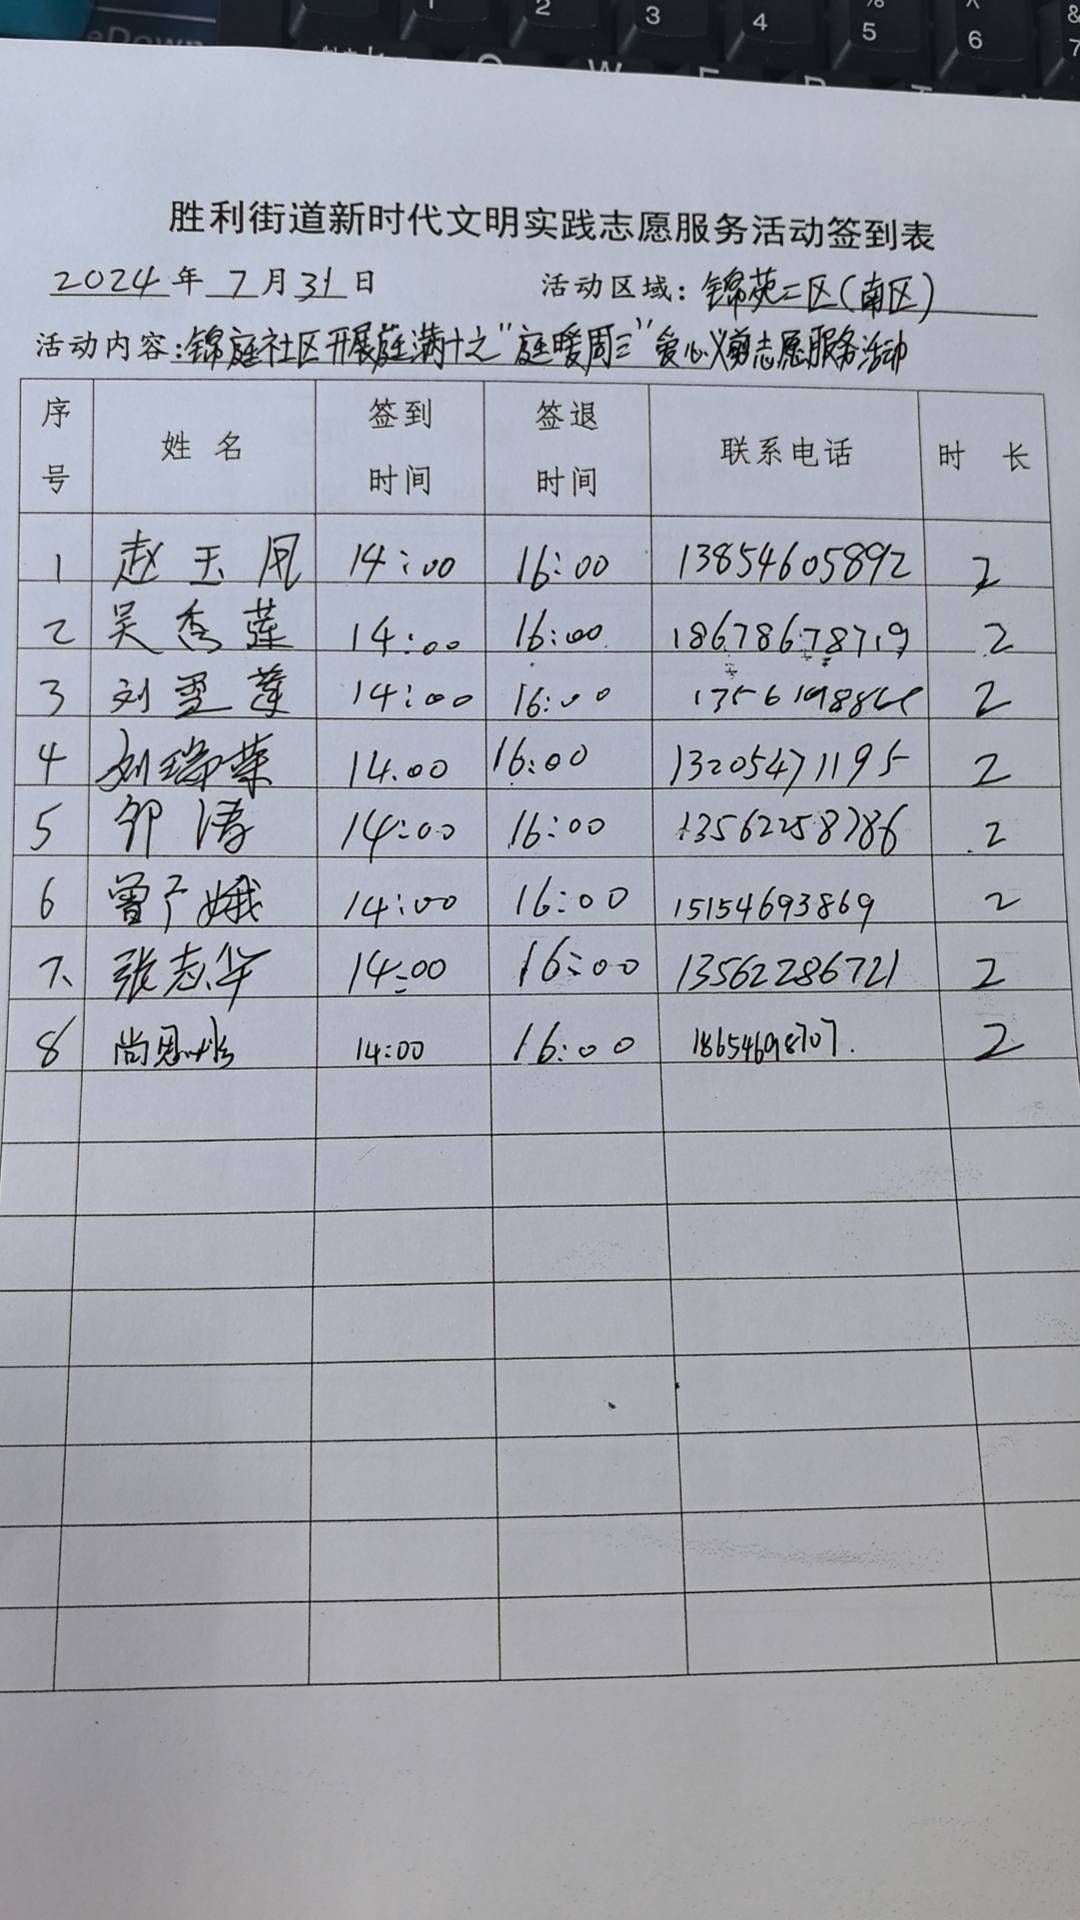 胜利街道新时代文明实践志愿服务活动签到表
2024年 7月31日 活动区域: 锦苑二区(南区)
活动内容: 锦庭社区开展庭满十之"庭暖周三"爱心义剪志愿服务活动
序号 姓名 签到时间 签退时间 联系电话 时长
1 赵玉凤 14:00 16:00 13854605892 2
2 吴秀莲 14:00 16:00 18678678719 2
3 刘 莲 14:00 16:00 2
4 刘瑞荣 14.00 16:00 13205471195 2
5 邹涛 14:00 16:00 13562258786 2
6 曾 娥 14:00 16:00 15154693869 2
7 张志华 14:00 16:00 13562286721 2
8 尚恩 14:00 16:00 18654698707. 2